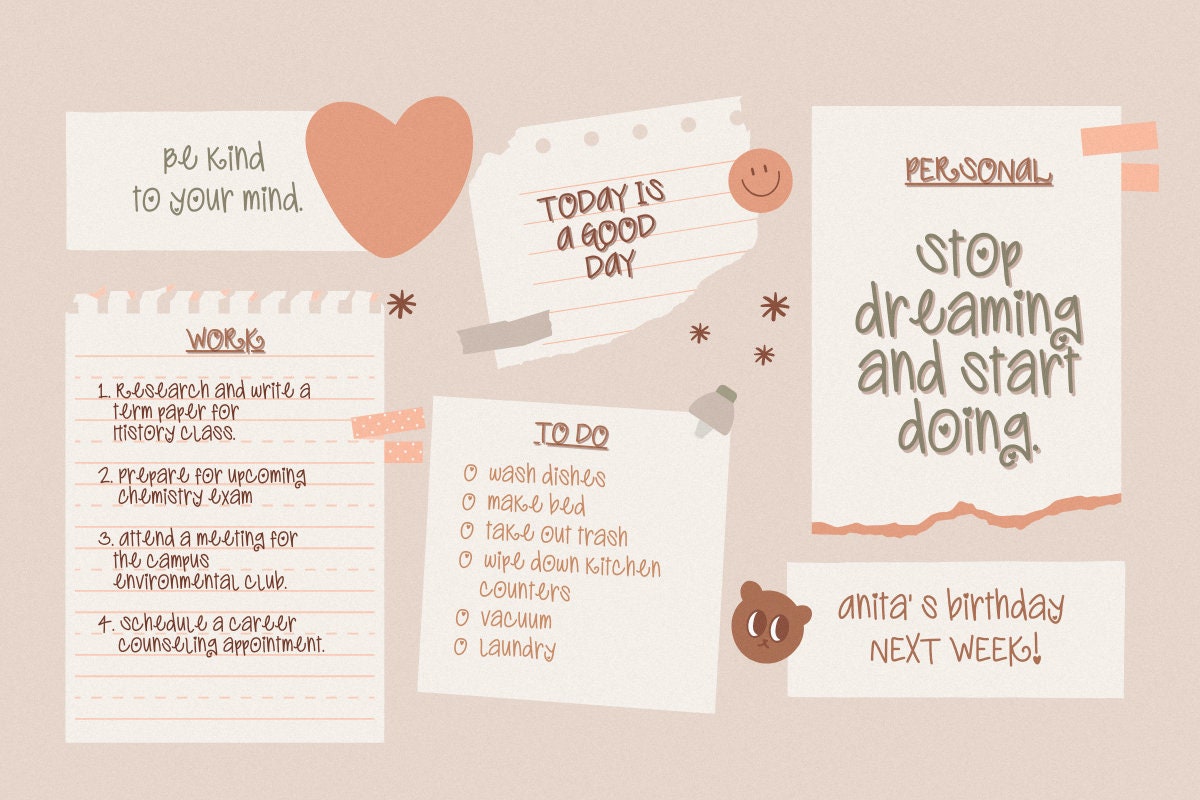 Be Kind
to your mind.
TODAY IS
a GOOD
DAY
PERSONAL
Stop
dreaming
and start
doing.
WORK
1. Research and write a
term paper for
History class.
2. prepare for upcoming
chemistry exam
3. attend a meeting for
the campus
environmental club.
4. schedule a career
counseling appointment.
TO DO
O wash dishes
O make bed
O take out trash
O wipe down kitchen
counters
O vacuum
O laundry
anita' s birthday
NEXT WEEK!